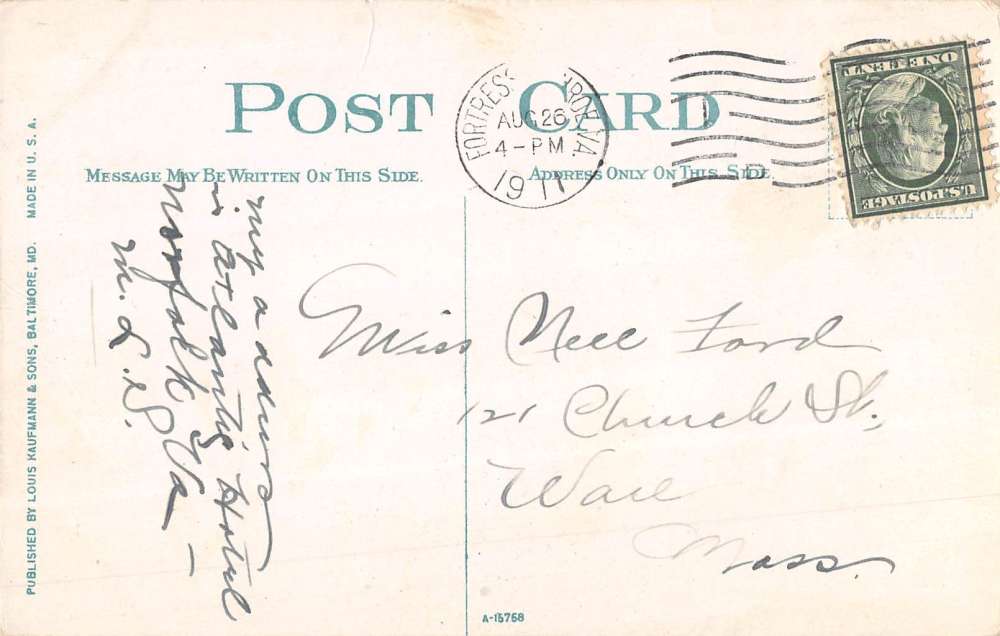 POST CARD
MESSAGE MAY BE WRITTEN ON THIS SIDE.
ADDRESS ONLY ON THIS SIDE.
FORTRESS MONROE VA.
AUG 26
4-PM
1911
ONE CENT
U.S. POSTAGE
my address
is Atlantic Hotel
Norfolk Va —
M. L. S.
Miss Nell Ford
121 Church St.
Ware
Mass.
PUBLISHED BY LOUIS KAUFMANN & SONS, BALTIMORE, MD. MADE IN U. S. A.
A-15768